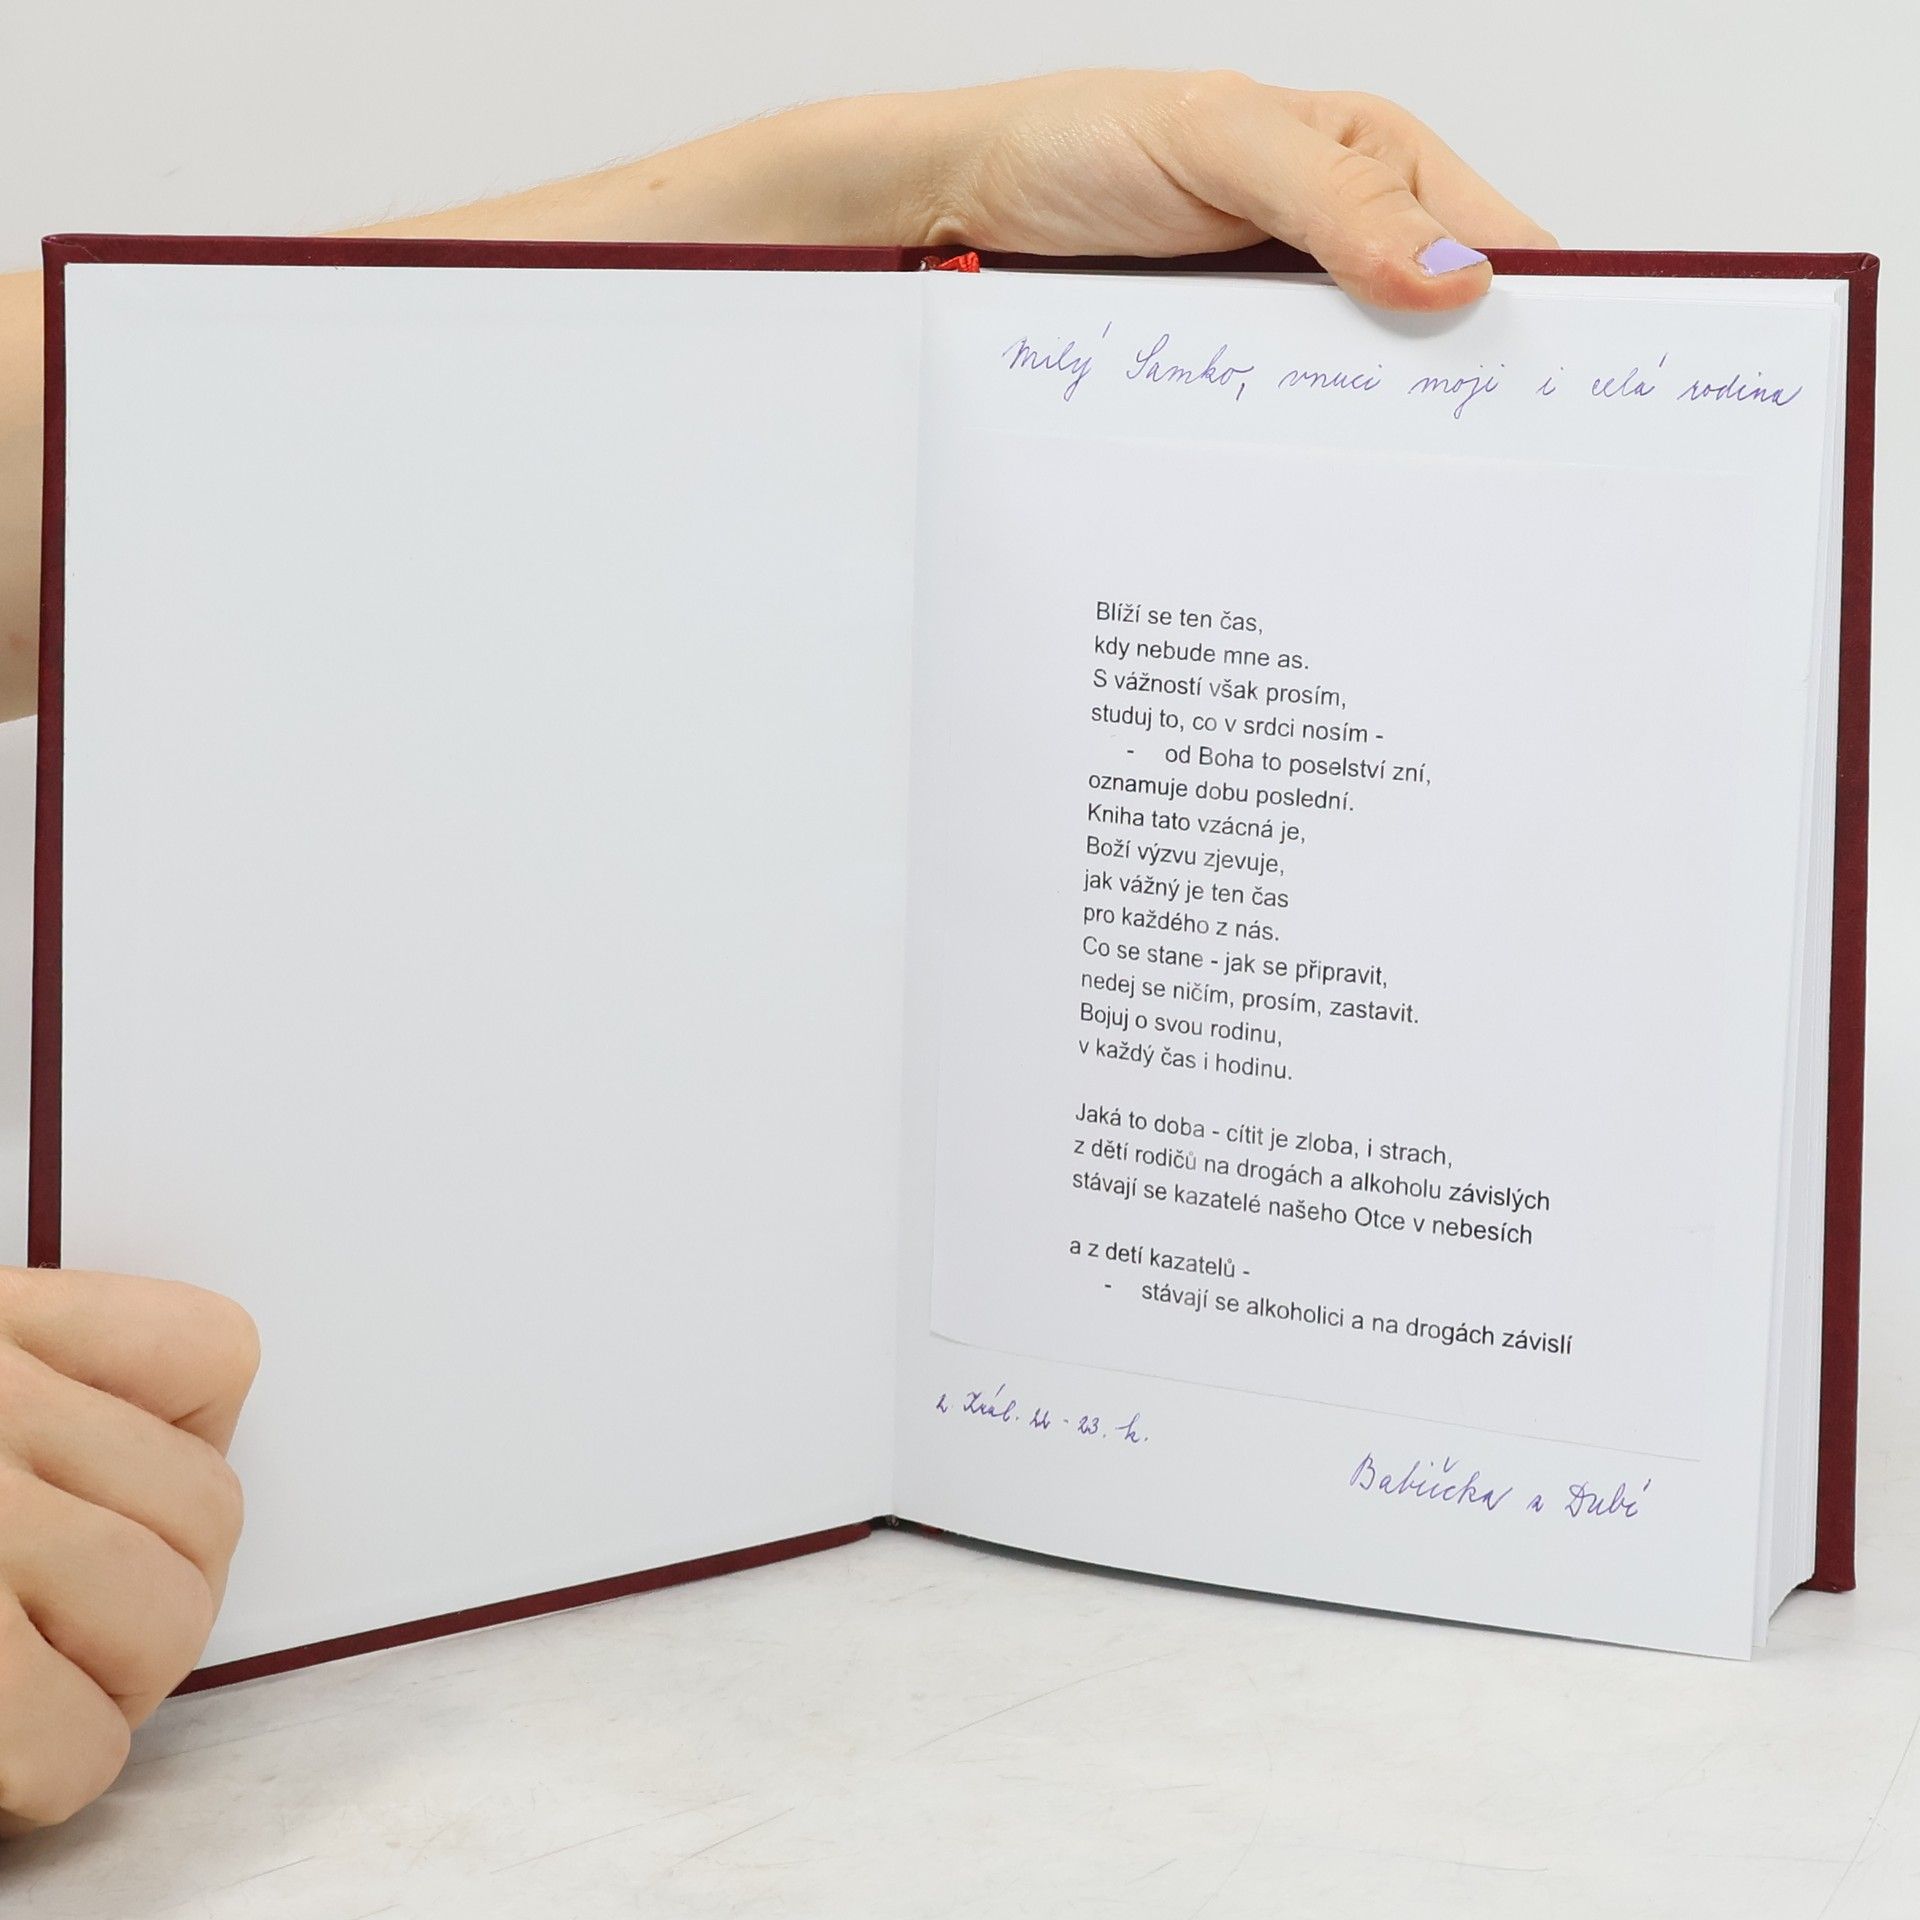 Milý Samko, vnuci moji i celá rodina
Blíží se ten čas,
kdy nebude mne as.
S vážností však prosím,
studuj to, co v srdci nosím -
- od Boha to poselství zní,
oznamuje dobu poslední.
Kniha tato vzácná je,
Boží výzvu zjevuje,
jak vážný je ten čas
pro každého z nás.
Co se stane - jak se připravit,
nedej se ničím, prosím, zastavit.
Bojuj o svou rodinu,
v každý čas i hodinu.
Jaká to doba - cítit je zloba, i strach,
z dětí rodičů na drogách a alkoholu závislých
stávají se kazatelé našeho Otce v nebesích
a z detí kazatelů -
- stávají se alkoholici a na drogách závislí
2. Král. 22 - 23. k.
Babička a